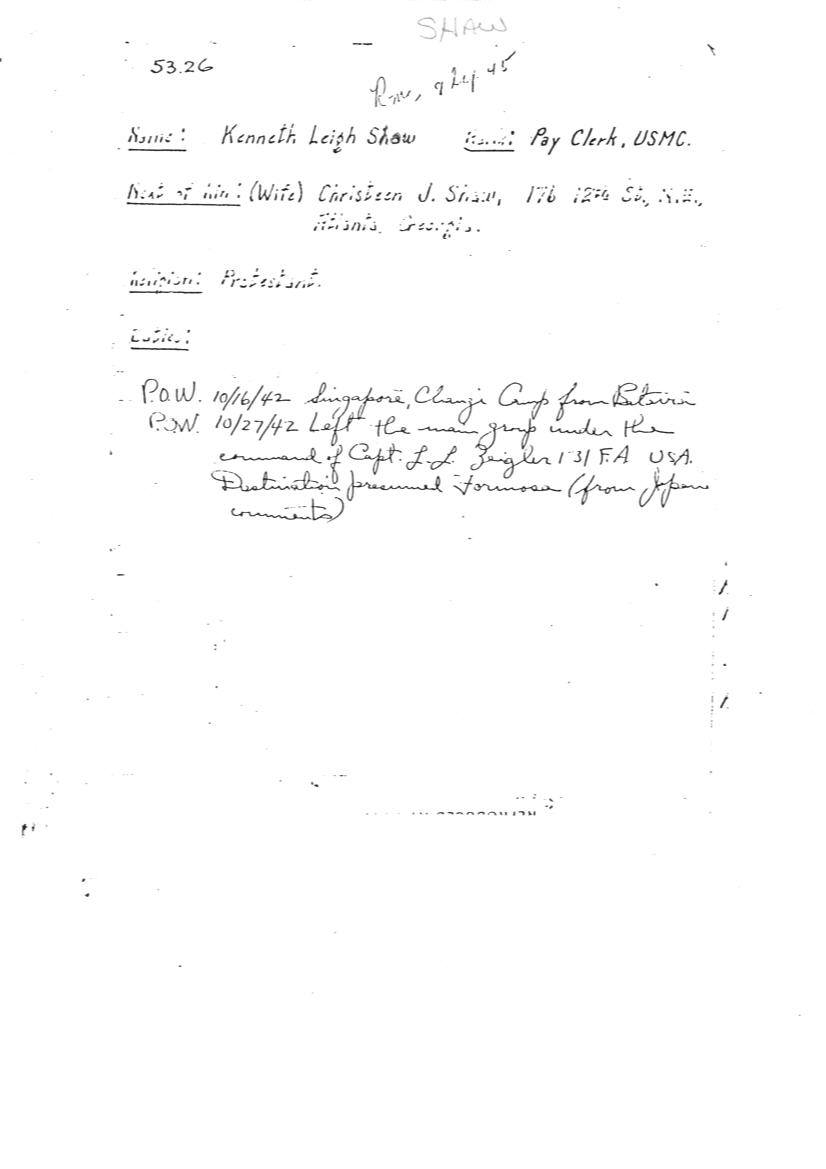 SHAW
53.26
Name: Kenneth Leigh Shaw Rank: Pay Clerk, USMC.
Next of kin: (Wife) Christeen J. Shaw, 176 12th St., N.E.,
Atlanta, Georgia.
Religion: Protestant.
Duties:
P.O.W. 10/16/42 Singapore, Changi Camp from Batavia
P.O.W. 10/27/42 Left the main group under the
command of Capt. L.L. Zeigler 131 F.A USA.
Destination presumed Formosa (from Japanese
comments)